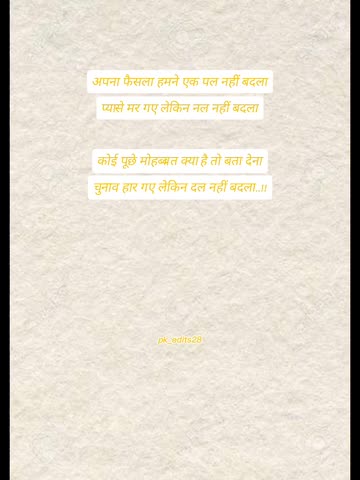 अपना फैसला हमने एक पल नहीं बदला
प्यासे मर गए लेकिन नल नहीं बदला
कोई पूछे मोहब्बत क्या है तो बता देना
चुनाव हार गए लेकिन दल नहीं बदला..।।
pk_edits28